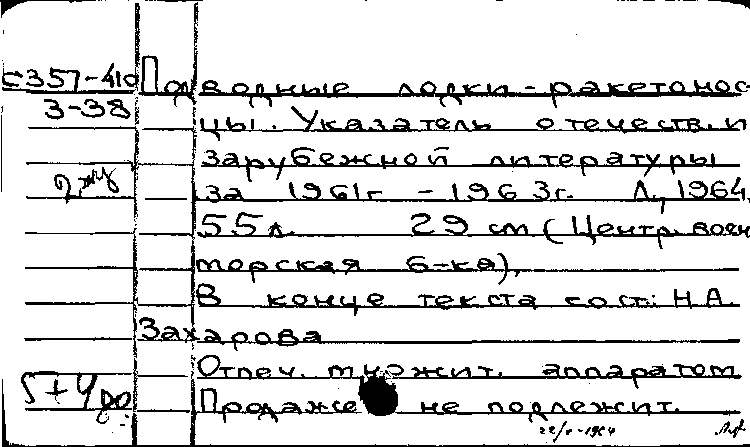 С357-410 Подводные лодки-ракетонос
3-38 цы. Указатель отечеств. и
зарубежной литературы
за 1961г - 1963г. Л., 1964.
55л. 29 см (Центр. воен
морская б-ка),
В конце текста сост: Н.А.
Захарова
Отпеч. множит. аппаратом
Продаже не подлежит.